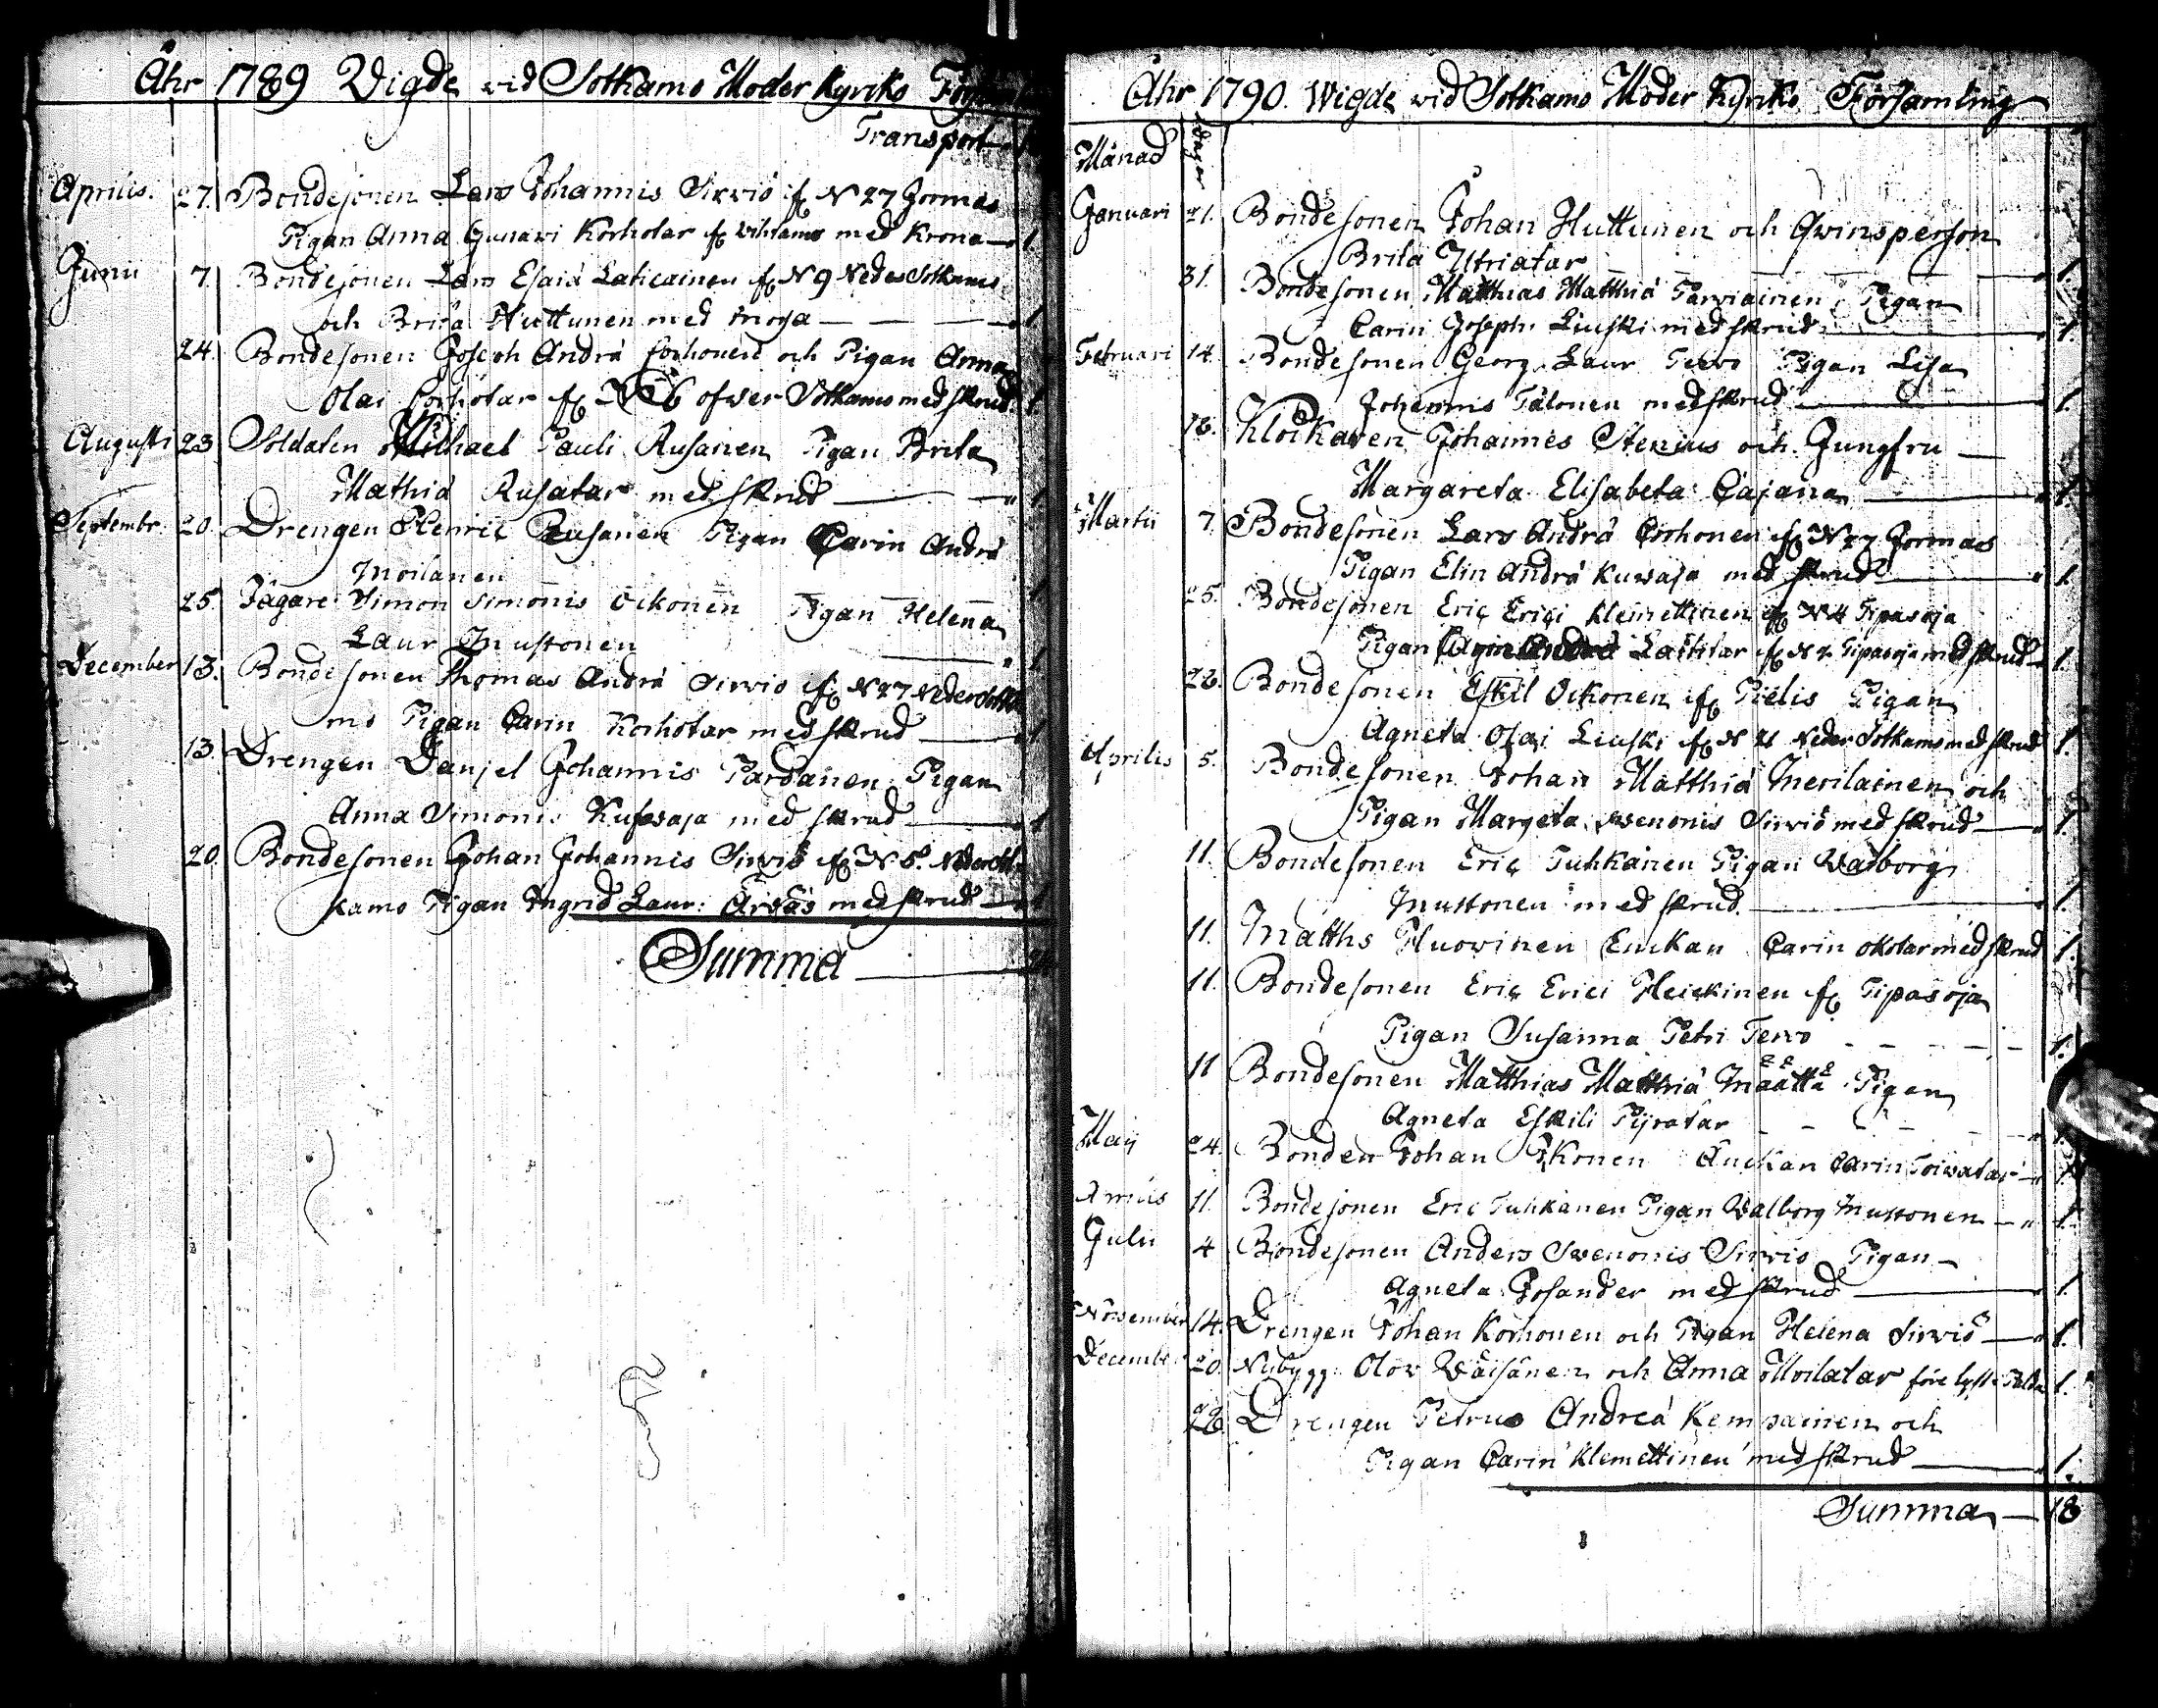 Åhr 1789 Vigde vid Sotkamo Moder Kyrko
Transport
Aprilis. 27. Bondesonen Lars Johannis Sirviö if N 27 Jormas
Pigan Anna Gustavi Korhotar if med Krona 1.
Junii 7. Bondesonen Lars Esaiæ Laticainen if N 9 Neder Sotkamo
och Brita Huttunen med 1
24. Bondesonen Joseph Andræ Corhonen och Pigan Anna
Olai Corhotar if N 6 ofver Sotkamo med skrud. 1.
Augusti 23 Soldaten Michael Pauli Rusanen Pigan Brita
Mathiæ Rusatar med skrud 1
Septembr. 20. Drengen Henric Rusanen Pigan Carin Andræ
Moilanen 1
25. Jägare Simon Simonis Oikonen Pigan Helena
Laur Mustonen 1
December 13. Bondesonen Thomas Andræ Sirviö if N 27 Neder Sotka
mo Pigan Carin Korhotar med skrud 1
13. Drengen Danjel Johannis Pardanen Pigan
Anna Simonis Kufvaja med skrud 1
20. Bondesonen Johan Johannis Sirviö if N 5. Neder Sot
kamo Pigan Ingrid Laur: Ärväs med skrud 1
Summa
Åhr 1790. Wigde vid Sotkamo Moder Kyrko Församling
Månad Dagar
Januari 21. Bondesonen Johan Huttunen och Qvinsperson
Brita Ytriatar 1.
31. Bondesonen Matthias Matthiæ Parviainen Pigan
Carin Joseph. Liuski med skrud 1.
Februari 14. Bondesonen Georg Laur Tervo Pigan Lisa
Johannis Tålonen med skrud 1.
Klockaren Johannes Stenius och Jungfru
Margareta Elisabeta Cajana 1.
Martii 7. Bondesonen Lars Andræ Corhonen if N 27 Jormas
Pigan Elin Andræ Kuvaja med skrud 1.
25. Bondesonen Eric Erici Klemettinen if N 4 Tipasoja
Pigan Carin Andræ Latitar if N 2 Tipasoja med skrud 1.
26. Bondesonen Eskil Oikonen if Pielis Pigan
Agneta Olai Liuski if N 21 Neder Sotkamo med skrud 1.
Aprilis 5. Bondesonen Johan Matthiæ Meriläinen och
Pigan Margeta Svenonis Sirviö med skrud 1
11. Bondesonen Eric Tuhkanen Pigan Valborg
Mustonen med skrud. 1.
11. Matths Huovinen Enckan Carin Okotar med skrud 1.
11. Bondesonen Eric Erici Heickinen if Tipasoja
Pigan Susanna Petri Tervo 1.
11 Bondesonen Matthias Matthiæ Määttä Pigan
Agneta Eskili Pijratar 1.
Maij 24. Bonden Johan Ikonen Änckan Carin Toivatar 1.
11. Bondesonen Eric Tuhkanen Pigan Valborg Mustonen 1.
Julii 4 Bondesonen Anders Svenonis Sirviö Pigan
Agneta Josander med skrud 1.
November 14. Drengen Johan Korhonen och Pigan Helena Sirviö 1.
December 20. Nybygg: Olov Väisänen och Anna Moilatar 1.
26. Drengen Petrus Andreæ Kemppainen och
Pigan Carin Klemettinen med skrud 1.
Summa 18